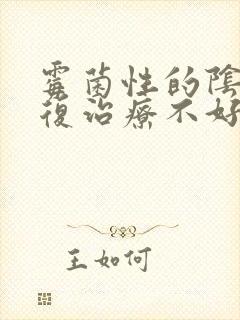 霉菌性的陰
復治療不好
王如何